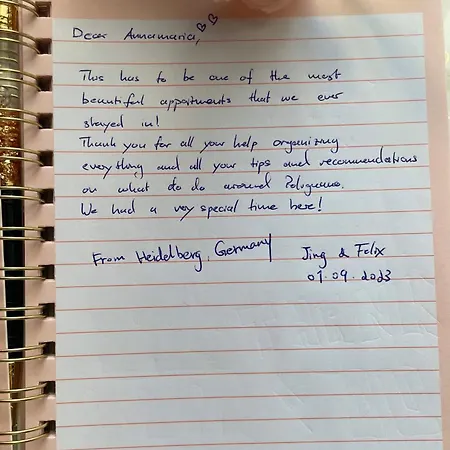 Dear Annamaria,
This has to be one of the most
beautiful appartments that we ever
stayed in!
Thank you for all your help organizing
everything and all your tips and recommendations
on what do do around Polignano.
We had a very special time here!
From Heidelberg, Germany
Jing & Felix
01.09.2023